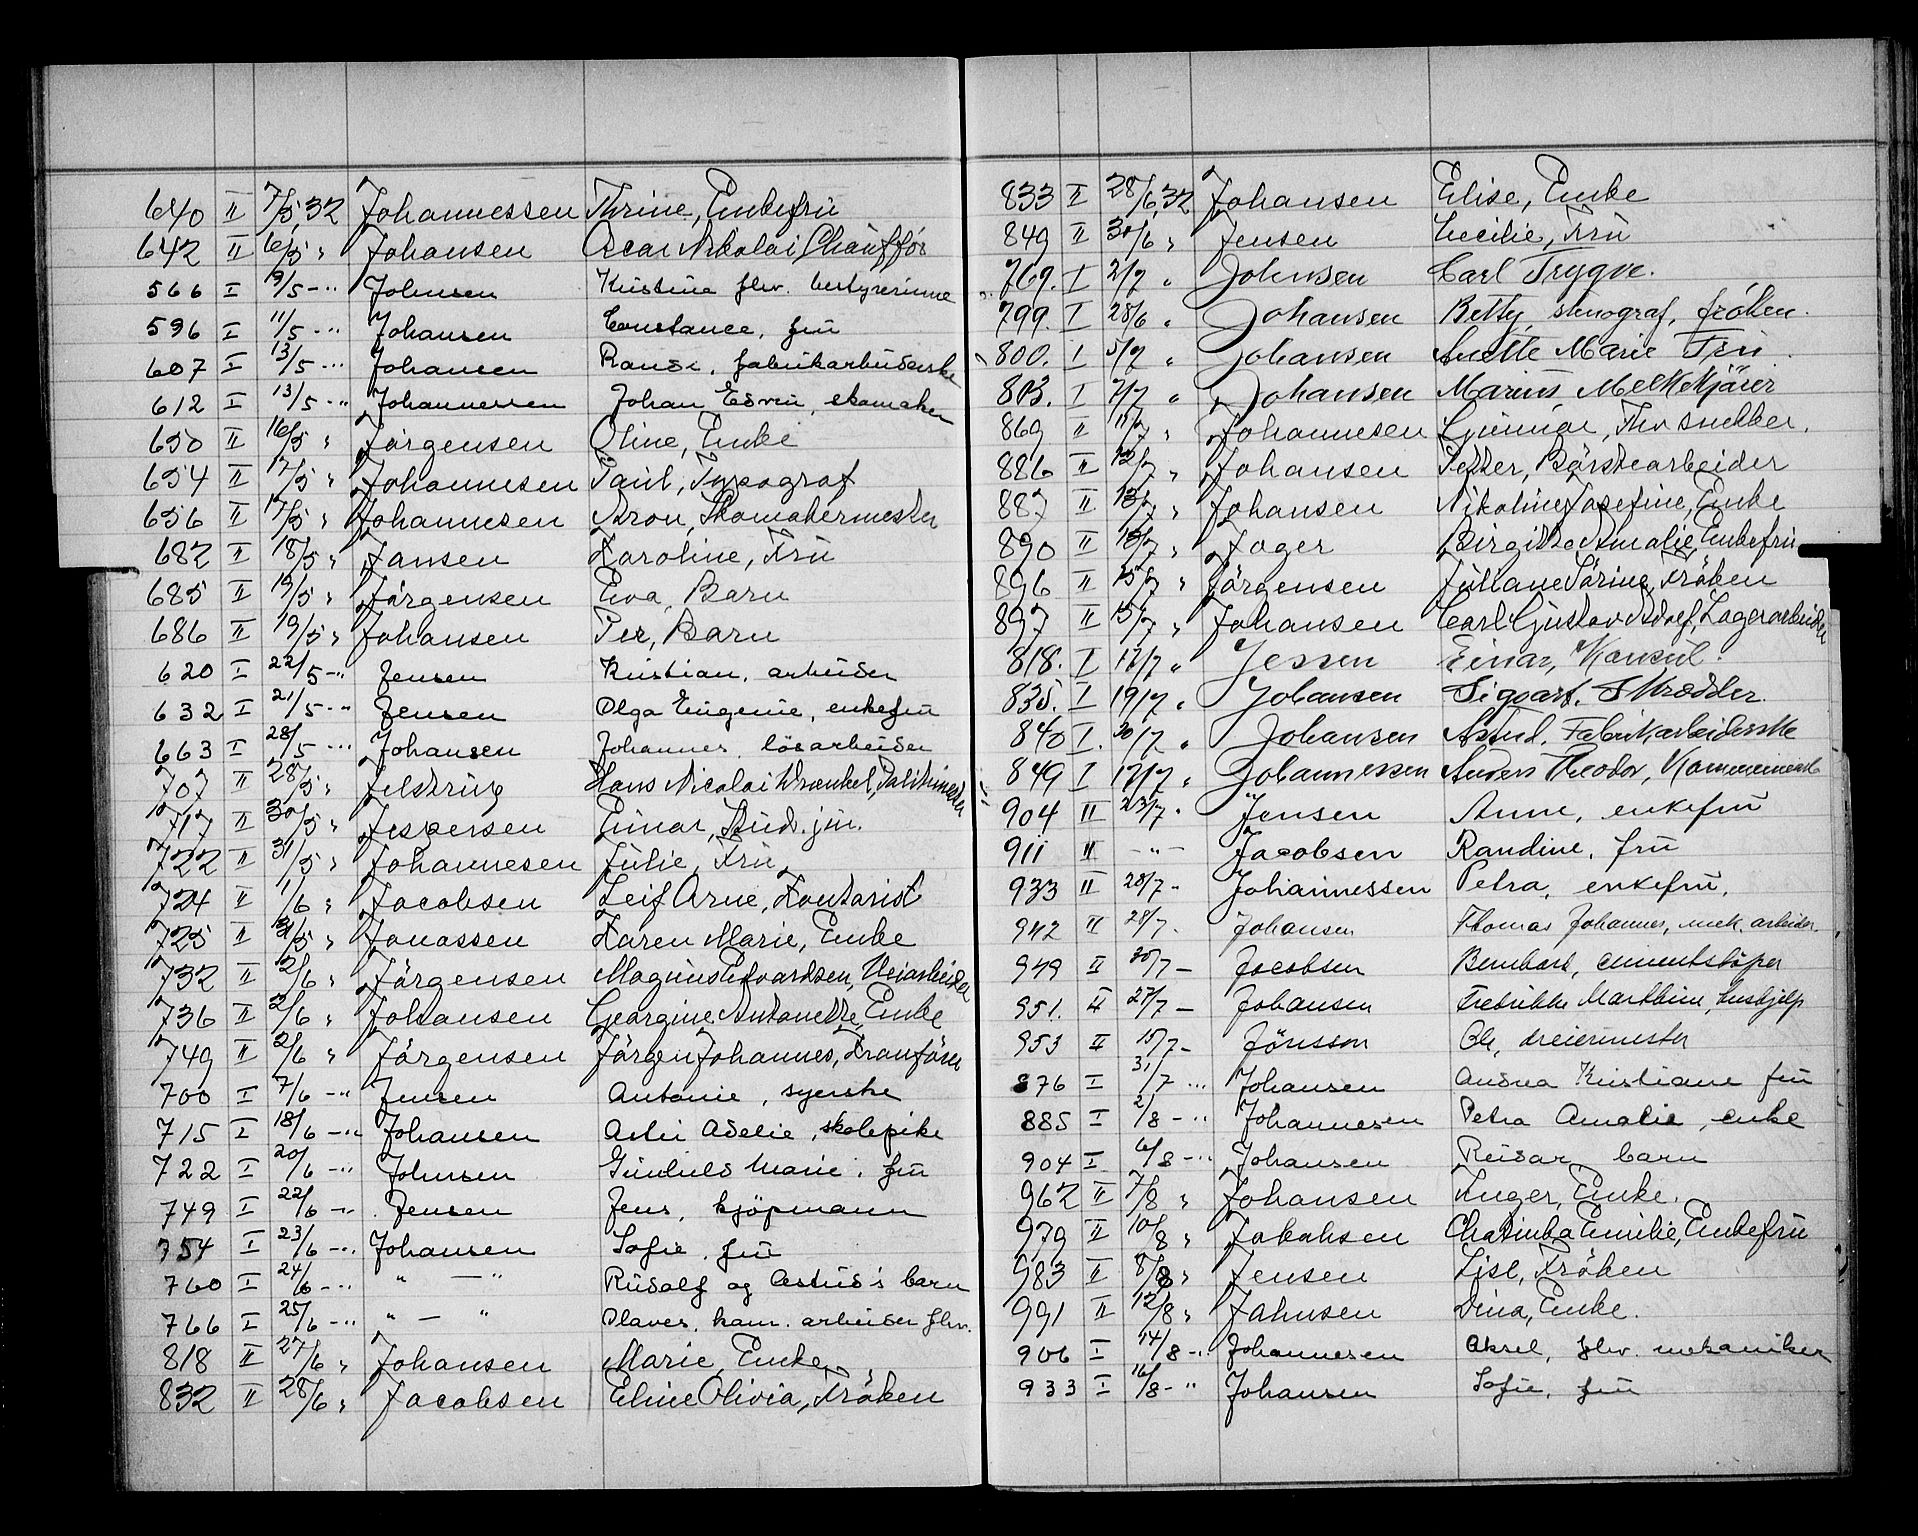 640 II 7/5 32 Johannessen Thrine, Enkefru
642 II 6/5 " Johansen Oscar Nikolai Chauffør
566 I 9/5 -"- Johnsen Kristine fhv. bestyrerinne
596 I 11/5 -"- Johansen Constance, fru
607 I 13/5 -"- Johansen Randi, fabrikarbeiderske
612 I 13/5 -"- Johannessen Johan Edvin, skomaker
650 II 16/5 " Jørgensen Oline, Enke
654 II 17/5 " Johannesen Paul, Typograf
656 II 17/5 " Johannesen Aron, Skomakermester
682 II 18/5 " Jansen Karoline, Fru
685 II 19/5 " Jørgensen Eva, Barn
686 II 19/5 " Johansen Per, Barn
620 I 22/5 -"- Jensen Kristian, arbeider
632 I 21/5 -"- Jensen Olga Eugenie, enkefru
663 I 28/5 -"- Johansen Johannes, løsarbeider
707 II 28/5 " Jelstrup Hans Nicolai Wrankel,
717 II 30/5 " Jespersen Gunar, Stud. jur.
722 II 31/5 " Johannesen Julie, Fru
724 II 1/6 " Jacobsen Leif Arne, Kontorist
725 II 31/5 " Jonassen Karen Marie, Enke
732 II 2/6 " Jørgensen Magnus Edvardsen, Veiarbeider
736 II 2/6 " Johansen Georgine Antonette, Enke
749 II 2/6 " Jørgensen Jørgen Johannes, Kranfører
700 I 7/6 -"- Jensen Antonie, syerske
715 I 18/6 -"- Johansen Adelie, skolepike
722 I 20/6 -"- Johnsen Gunhild Marie, fru
749 I 22/6 -"- Jensen Jens, kjøpmann
754 I 23/6 -"- Johansen Sofie, fru
760 I 24/6 -"- " — " Rudolf og Astrid's barn
766 I 25/6 -"- " — " Olaves, kom. arbeider fhv.
818 II 27/6 " Johansen Marie, Enke
832 II 28/6 " Jacobsen Eline Olivia, Frøken
833 II 28/6 32 Johansen Elise, Enke
849 II 30/6 " Jensen Cecilie, Fru
769. I 2/7 " Johnsen Carl Trygve.
799. I 28/6 " Johansen Betty, stenograf, frøken.
800. I 5/7 " Johansen Anette Marie Fru.
803. I 7/7 " Johansen Marius Melkekjører
869 II 11/7 " Johannesen Gunnar, Fhv snekker.
886 II 12/7 " Johansen Petter, Børstearbeider
887 II 13/7 " Johansen Nikoline Josefine, Enke
890 II 13/7 " Jager Birgitte Amalie, Enkefru
896 II 15/7 " Jørgensen Juliane Sørine, Frøken
897 II 15/7 " Johansen Carl Gustav Adolf, Lagerarbeider
818. I 17/7 " Jessen Einar, Konsul.
835. I 19/7 " Johansen Sigvart, Skredder.
840 I. 20/7 " Johansen Astrid. Fabrikarbeiderske
849 I 17/7 " Johannessen Anders Theodor,
904 II 23/7 " Jensen Anne, enkefru
911 II -"- Jacobsen Randine, fru
933 II 28/7 - Johannessen Petra, enkefru,
942 II 28/7 - Johansen Thomas Johannes, mek. arbeider.
949 II 30/7 - Jacobsen Bernhart, cementstøper
951. II 27/7 - Johansen Fredrikke Marthine, hushjelp
953 II 15/7 - Jönsson Ole, dreiermester
876 I 31/7 -"- Johansen Andrea Kristiane fru
885 I 2/8 -"- Johannesen Petra Amalie, enke
904 I 6/8 -"- Johansen Reidar, barn
962 II 7/8 " Johansen Inger, Enke.
979 II 10/8 " Jakobsen Chatinka Emilie, Enkefru
983 II 8/8 " Jensen Lisl, Frøken
991 II 12/8 " Jahnsen Dina, Enke.
906 I 14/8 -"- Johannesen Aksel, fhv. mekaniker
933 I 16/8 -"- Johansen Sofie, fru